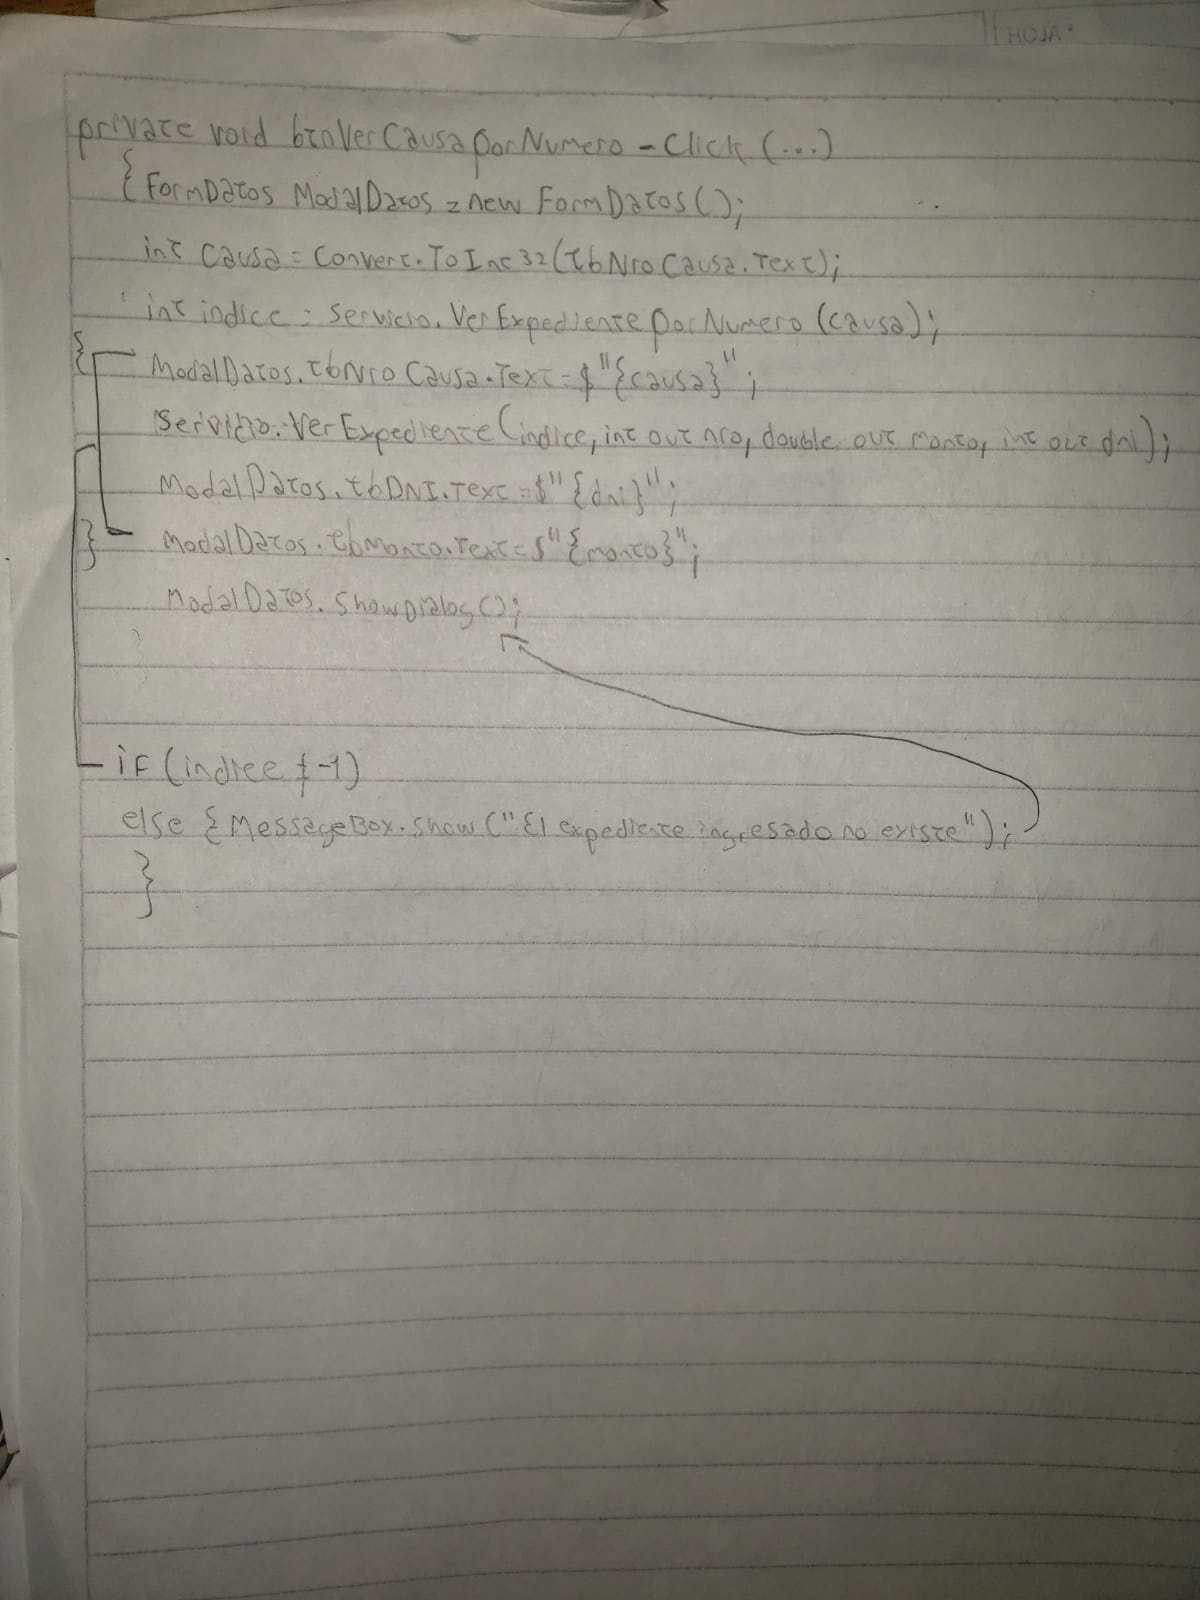 11 HOJA.
private void btnVerCausaporNumero-Click (...)
{ FormDatos ModalDatos = new FormDatos();
int causa = Convert.ToInt32(tbNroCausa.Text);
int indice = servicio.VerExpedienteporNumero(causa);
{ ModalDatos.tbNroCausa.Text=$"{causa}";
Servicio.VerExpediente(indice, int out nro, double out monto, int out dni);
ModalDatos.tbDNI.Text=$"{dni}";
} ModalDatos.tbMonto.Text=$"{monto}";
ModalDatos.ShowDialog();
if (indice ≠ -1)
else { MessageBox.Show("El expediente ingresado no existe");
}